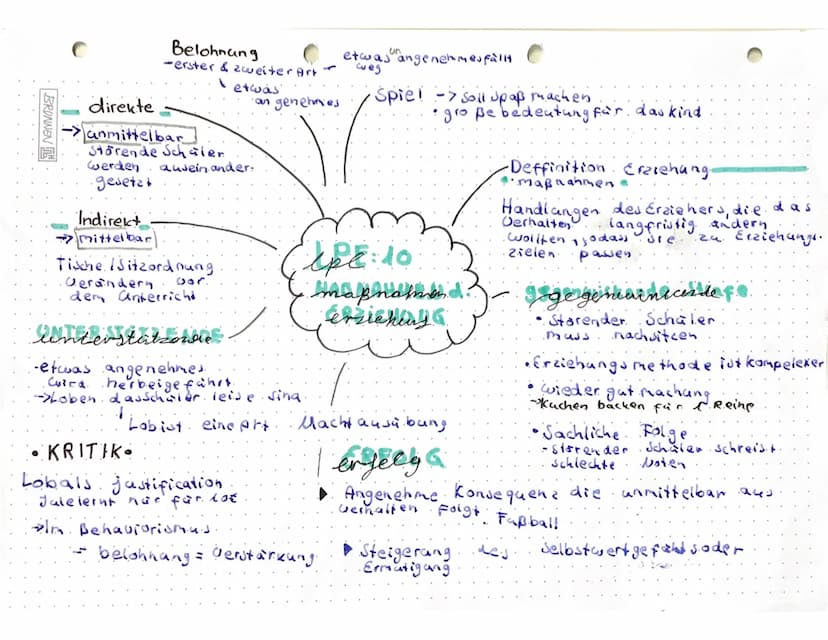 Belohnung
-erster & zweiter Art - etwas unangenehmes fällt
weg
etwas
angenehmes
Spiel -> soll spaß machen
• große bedeutung für das kind
BRUNNEN
direkte
-> unmittelbar
störende Schüler
werden auseinander-
gesetzt
Deffinition Erziehung
• maßnahmen •
Handlungen des Erziehers, die das
Verhalten langfristig ändern
wollten, sodass sie zu Erziehungs-
zielen passen
Indirekt
-> mittelbar
Tische/Sitzordnung
verändern vor
dem Unterricht
LPE:10
lpe
maßnahmen d.
ERZIEHUNG
erziehung
UNTERSTÜTZENDE
unterstützende
-etwas angenehmes
wird herbeigeführt
-> Loben dass schüler leise sind
Lob ist eine Art Machtausübung
• Störender Schüler
muss nachsitzen
• Erziehungsmethode ist kompelexer
• wieder gut machung
-> Kuchen backen für 1 Reihe
• Sachliche Folge
- störender schüler schreist
schlechte Noten
• KRITIK •
Lob als justification
-> Im Behaviorismus
- belohnung = Verstärkung
ERFOLG
erfolg
Angenehme Konsequenz die unmittelbar aus
verhalten folgt. Fußball
Steigerung des Selbstwertgefühls oder
Ermutigung